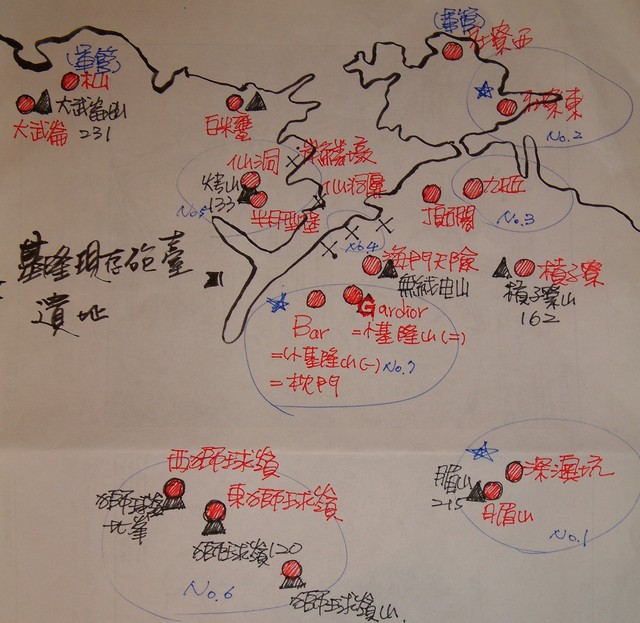 (軍管)
木山
大武崙山
大武崙
231
白米甕
(軍管)
社寮西
社寮東
No.2
仙洞
槓山
133
No.5
半月型堡
仙洞
力
頂石閣
No.3
No.4
基隆現存砲臺
遺址
海門天險
無線电山
槓子寮
槓子寮山
162
Gardior
Bar =小基隆山(二)
=小基隆山(一) No.7
=枕門
西獅球嶺
獅球嶺
北峯
東獅球嶺
獅球嶺120
No.6
獅球嶺山
深澳坑
月眉山
215
月眉山
No.1